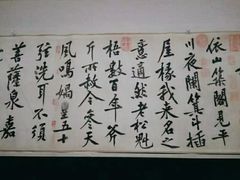 依山築閣見平
川夜闌箕斗插
屋椽我来名之
意適然老松魁
梧數百年斧
斤所赦今参天
風鳴媧皇五十
弦洗耳不須
菩薩泉嘉